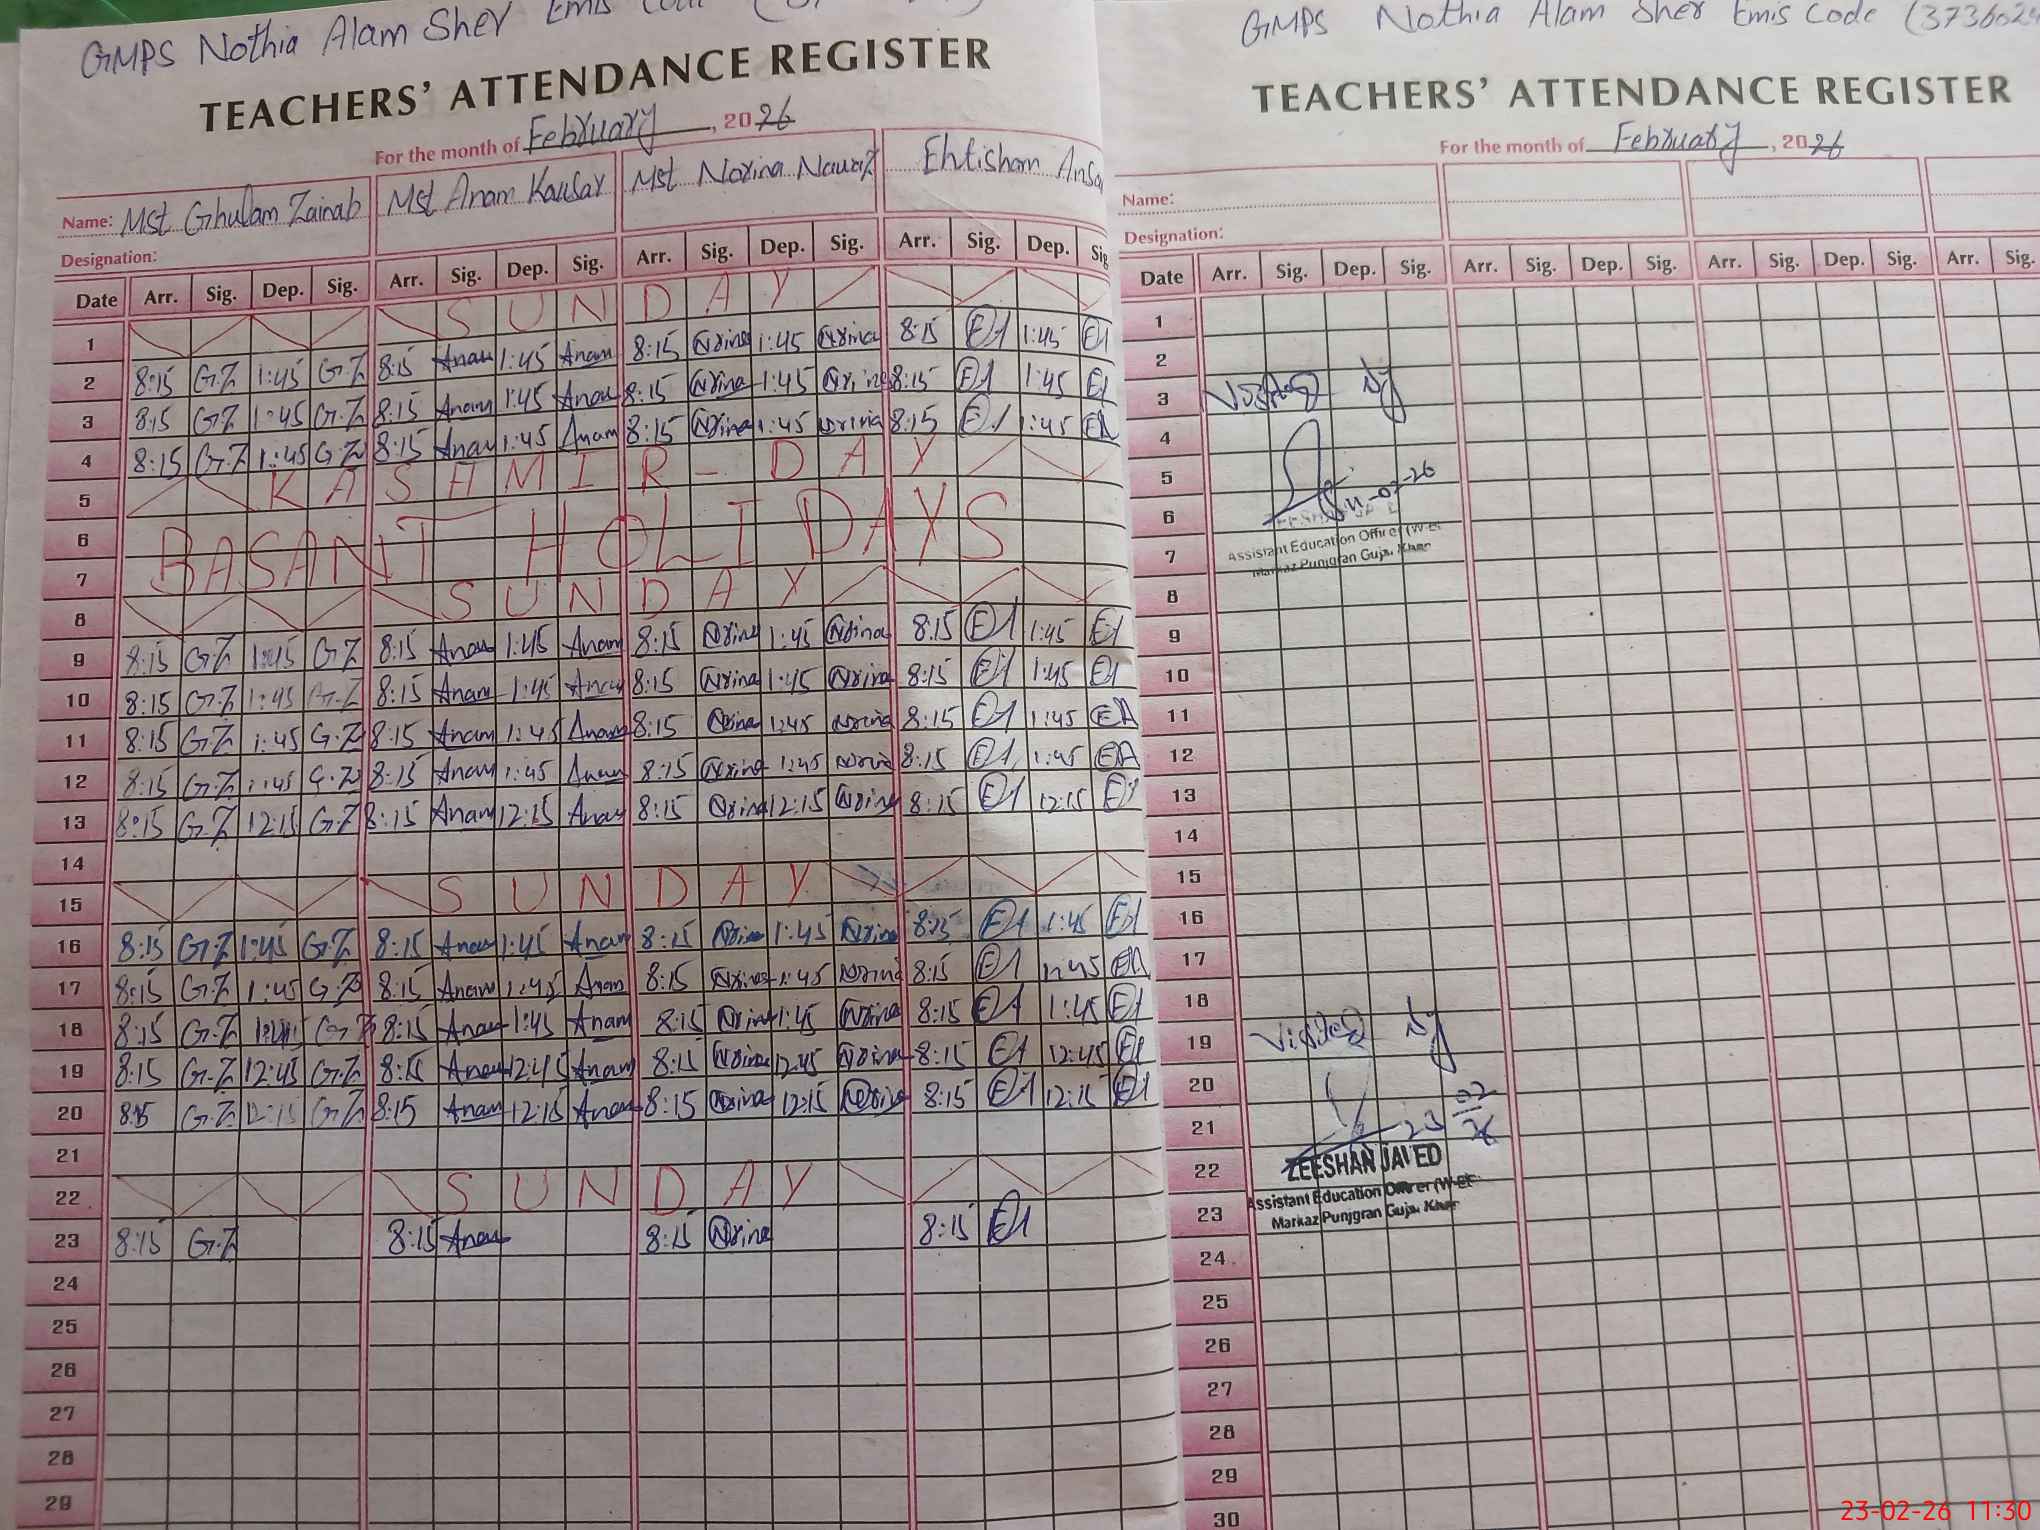 GMPS Nothia Alam Sher Emis Code
TEACHERS' ATTENDANCE REGISTER
For the month of February, 2026
Name: Mst Ghulam Zainab Mst Anam Kausar Mst Norina Nawaz Ehtisham Ansa
Designation:
Date Arr. Sig. Dep. Sig. Arr. Sig. Dep. Sig. Arr. Sig. Dep. Sig. Arr. Sig. Dep. Sig
1 SUNDAY
2 8:15 G.Z 1:45 G.Z 8:15 Anam 1:45 Anam 8:15 Norina 1:45 Norina 8:15 EA 1:45 EA
3 8:15 G.Z 1:45 G.Z 8:15 Anam 1:45 Anam 8:15 Norina 1:45 Norina 8:15 EA 1:45 EA
4 8:15 G.Z 1:45 G.Z 8:15 Anam 1:45 Anam 8:15 Norina 1:45 Norina 8:15 EA 1:45 EA
5 KASHMIR-DAY
6 BASANT HOLIDAYS
7
8 SUNDAY
9 8:15 G.Z 1:45 G.Z 8:15 Anam 1:45 Anam 8:15 Norina 1:45 Norina 8:15 EA 1:45 EA
10 8:15 G.Z 1:45 G.Z 8:15 Anam 1:45 Anam 8:15 Norina 1:45 Norina 8:15 EA 1:45 EA
11 8:15 G.Z 1:45 G.Z 8:15 Anam 1:45 Anam 8:15 Norina 1:45 Norina 8:15 EA 1:45 EA
12 8:15 G.Z 1:45 G.Z 8:15 Anam 1:45 Anam 8:15 Norina 1:45 Norina 8:15 EA 1:45 EA
13 8:15 G.Z 12:15 G.Z 8:15 Anam 12:15 Anam 8:15 Norina 12:15 Norina 8:15 EA 12:15 EA
14
15 SUNDAY
16 8:15 G.Z 1:45 G.Z 8:15 Anam 1:45 Anam 8:15 Norina 1:45 Norina 8:15 EA 1:45 EA
17 8:15 G.Z 1:45 G.Z 8:15 Anam 1:45 Anam 8:15 Norina 1:45 Norina 8:15 EA 1:45 EA
18 8:15 G.Z G.Z 8:15 Anam 1:45 Anam 8:15 Norina 1:45 Norina 8:15 EA 1:45 EA
19 8:15 G.Z 12:45 G.Z 8:15 Anam 12:45 Anam 8:15 Norina 12:45 Norina 8:15 EA 12:45 EA
20 8:15 G.Z 12:15 G.Z 8:15 Anam 12:15 Anam 8:15 Norina 12:15 Norina 8:15 EA 12:15 EA
21
22 SUNDAY
23 8:15 G.Z 8:15 Anam 8:15 Norina 8:15 EA
24
25
26
27
28
29
GMPS Nothia Alam Sher Emis Code (373602
TEACHERS' ATTENDANCE REGISTER
For the month of February, 2026
Name:
Designation:
Date Arr. Sig. Dep. Sig. Arr. Sig. Dep. Sig. Arr. Sig. Dep. Sig. Arr. Sig.
1
2
3 Visited by
4
5
6
7 Assistant Education Officer (W-EE
Markaz Punjgran Guja. Khan
8
9
10
11
12
13
14
15
16
17
18
19 Visited by
20
21 23 02 26
22 ZEESHAN JAVED
23 Assistant Education Officer (W-EE
Markaz Punjgran Guja. Khan
24
25
26
27
28
29
30
23-02-26 11:30